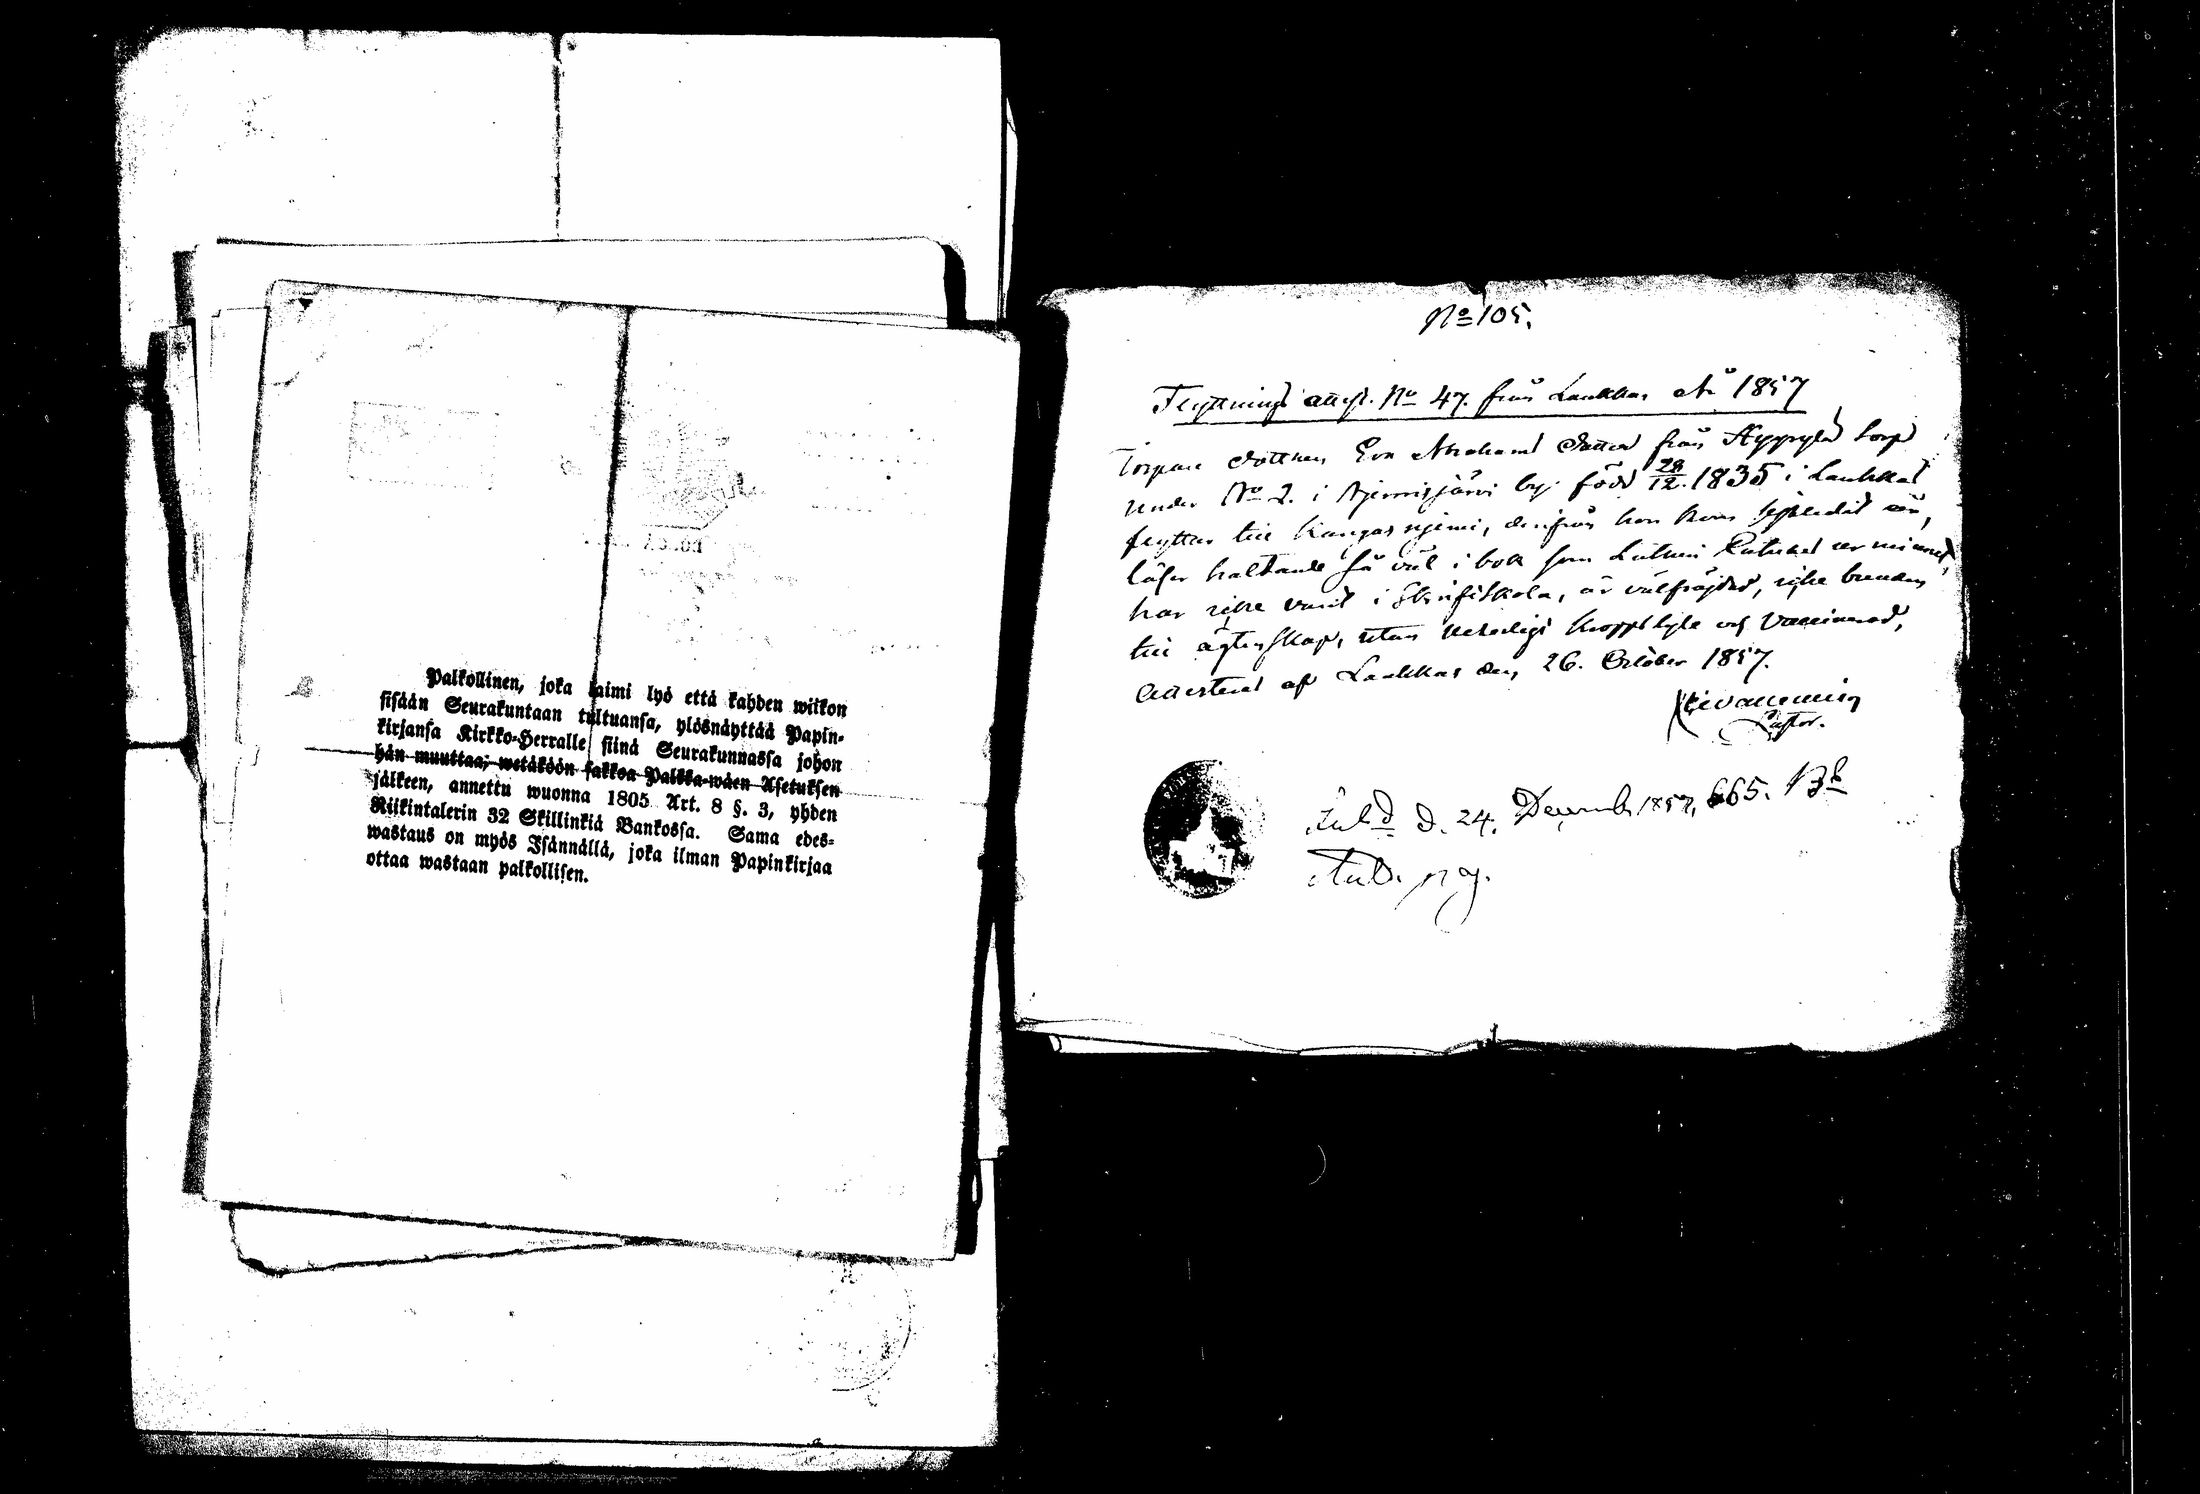 Palkollinen, joka laimi lyö että kahden wiikon
sisään Seurakuntaan tultuansa, ylösnäyttää Papin-
kirjansa Kirkko-Herralle siinä Seurakunnassa johon
hän muuttaa; wetäköön sakkoa Palkka-wäen Asetuksen
jälkeen, annettu wuonna 1805 Art. 8 §. 3, yhden
Riikintalerin 32 Skillinkiä Bankossa. Sama edes-
wastaus on myös Isännällä, joka ilman Papinkirjaa
ottaa wastaan palkollisen.
No 105.
Flyttnings attest. No 47. från Laukkas År 1857
Torpare dottren Eva Abrahams dotter från Hyppylä torp
under No 2. i Njemisjärvi by: född 28/12. 1835 i Laukkas
flyttar till Kangasnjemi, derifrån hon
läser så väl i bok som Lutheri
har icke varit i Skriftskola, är välfräjdad, icke bunden
till ägtenskap, utan kroppslyte och Vaccinerad,
Attesteras af Laukkas den 26. October 1857.
Pastor.
d. 24. Decemb. 1857, 665.